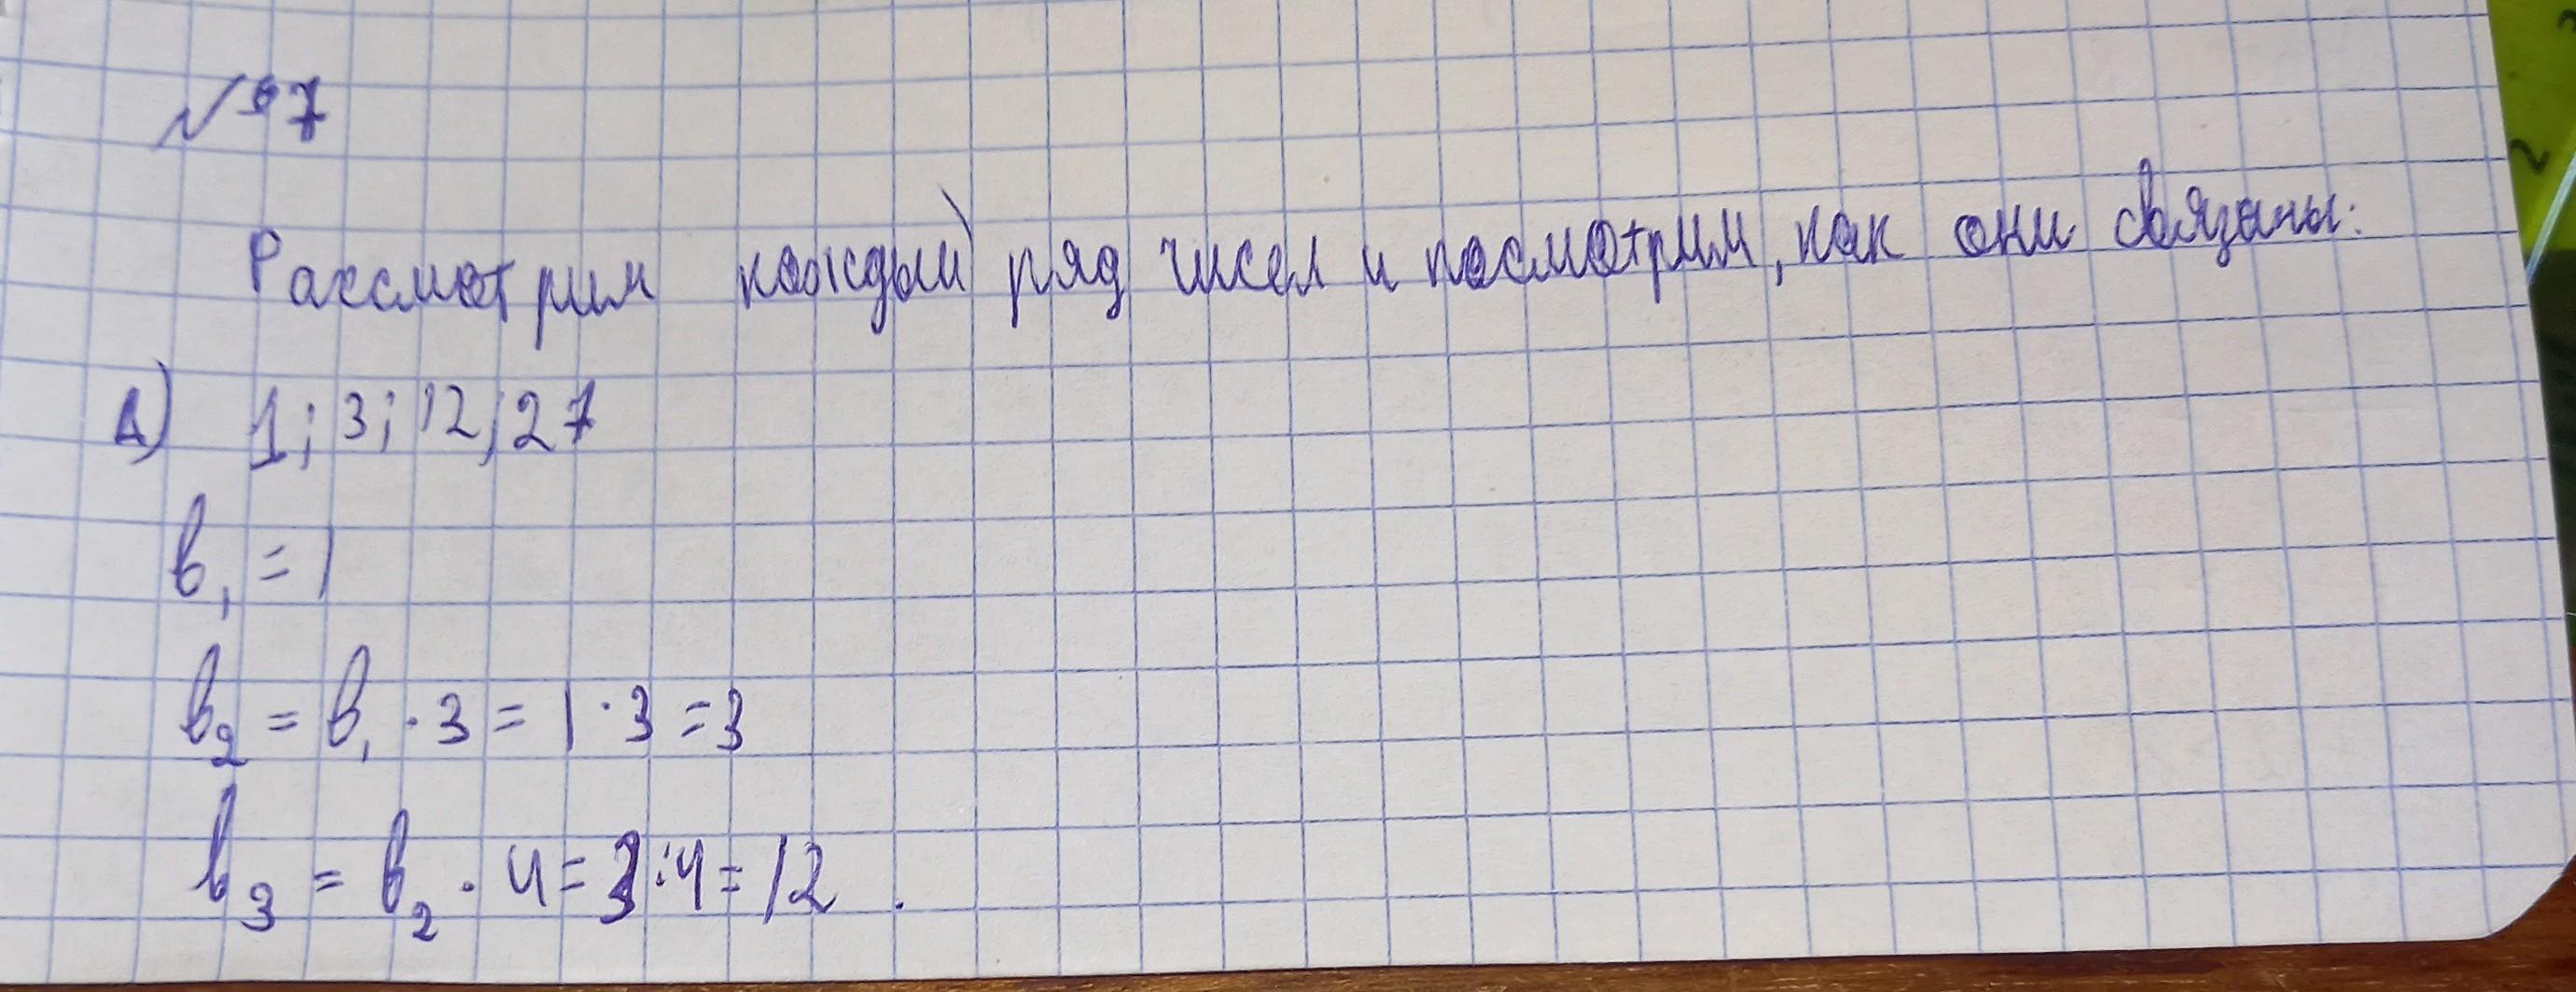 №7
Рассмотрим каждый ряд чисел и посмотрим, как они связаны:
А) 1; 3; 12; 27
b₁ = 1
b₂ = b₁ · 3 = 1 · 3 = 3
b₃ = b₂ · 4 = 3 : 4 = 12 .